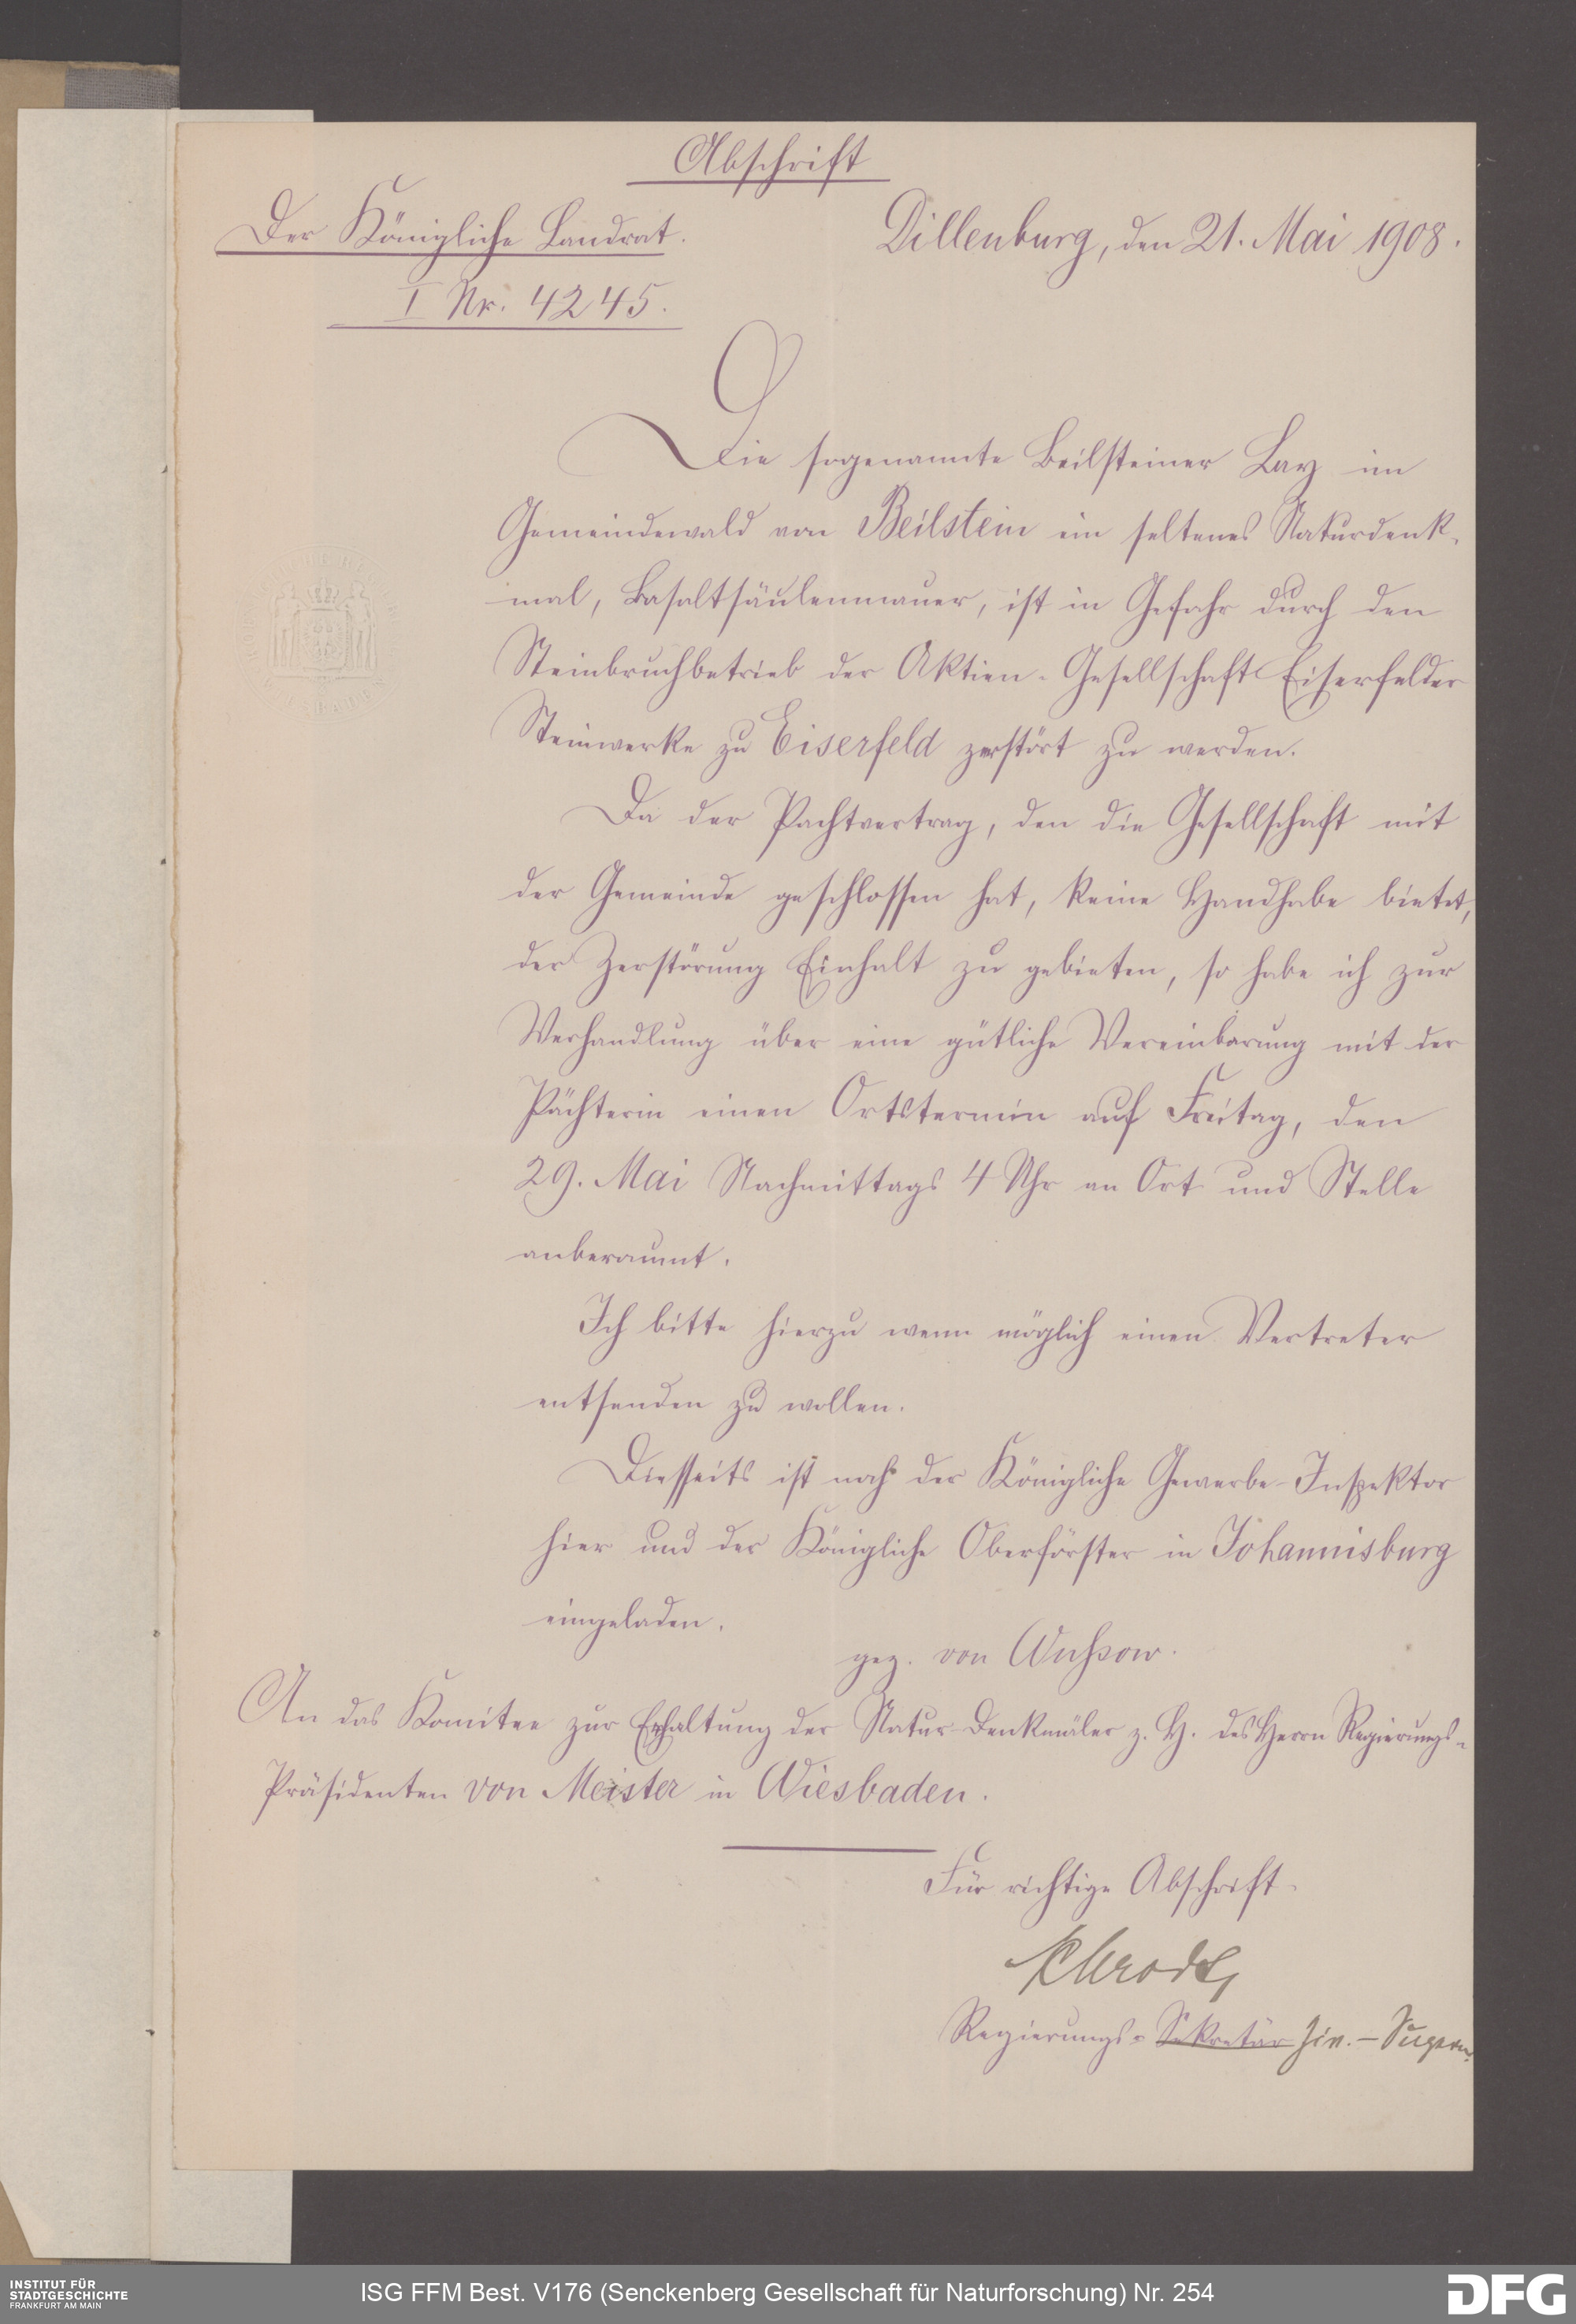 Abschrift
Der Königliche Landrat.
I Nr. 4245.
Dillenburg, den 21. Mai 1908.
Die sogenannte Beilsteiner Lay im
Gemeindewald von Beilstein ein seltenes Naturdenk-
mal, Basaltsäulenmauer, ist in Gefahr durch den
Steinbruchbetrieb der Aktien-Gesellschaft Eiserfelder
Steinwerke zu Eiserfeld zerstört zu werden.
Da der Pachtvertrag, den die Gesellschaft mit
der Gemeinde geschlossen hat, keine Handhabe bietet,
der Zerstörung Einhalt zu gebieten, so habe ich zur
Verhandlung über eine gütliche Vereinbarung mit der
Pächterin einen Ortstermin auf Freitag, den
29. Mai Nachmittags 4 Uhr an Ort und Stelle
anberaumt.
Ich bitte hierzu wenn möglich einen Vertreter
entsenden zu wollen.
Diesseits ist noch der Königliche Gewerbe-Inspektor
hier und der Königliche Oberförster in Johannisburg
eingeladen.
gez. von Wussow.
An das Komitee zur Erhaltung der Natur-Denkmäler z. H. des Herrn Regierungs-
Präsidenten von Meister in Wiesbaden.
Für richtige Abschrift.
Regierungs-Sekretär
INSTITUT FÜR
STADTGESCHICHTE
FRANKFURT AM MAIN
ISG FFM Best. V176 (Senckenberg Gesellschaft für Naturforschung) Nr. 254
DFG